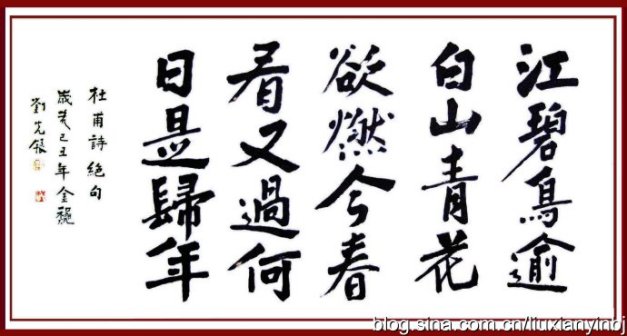 江碧鳥逾
白山青花
欲燃今春
看又過何
日是歸年
杜甫詩絕句
己丑年金龝
劉先銀
blog.sina.com.cn/liuxianyinbj